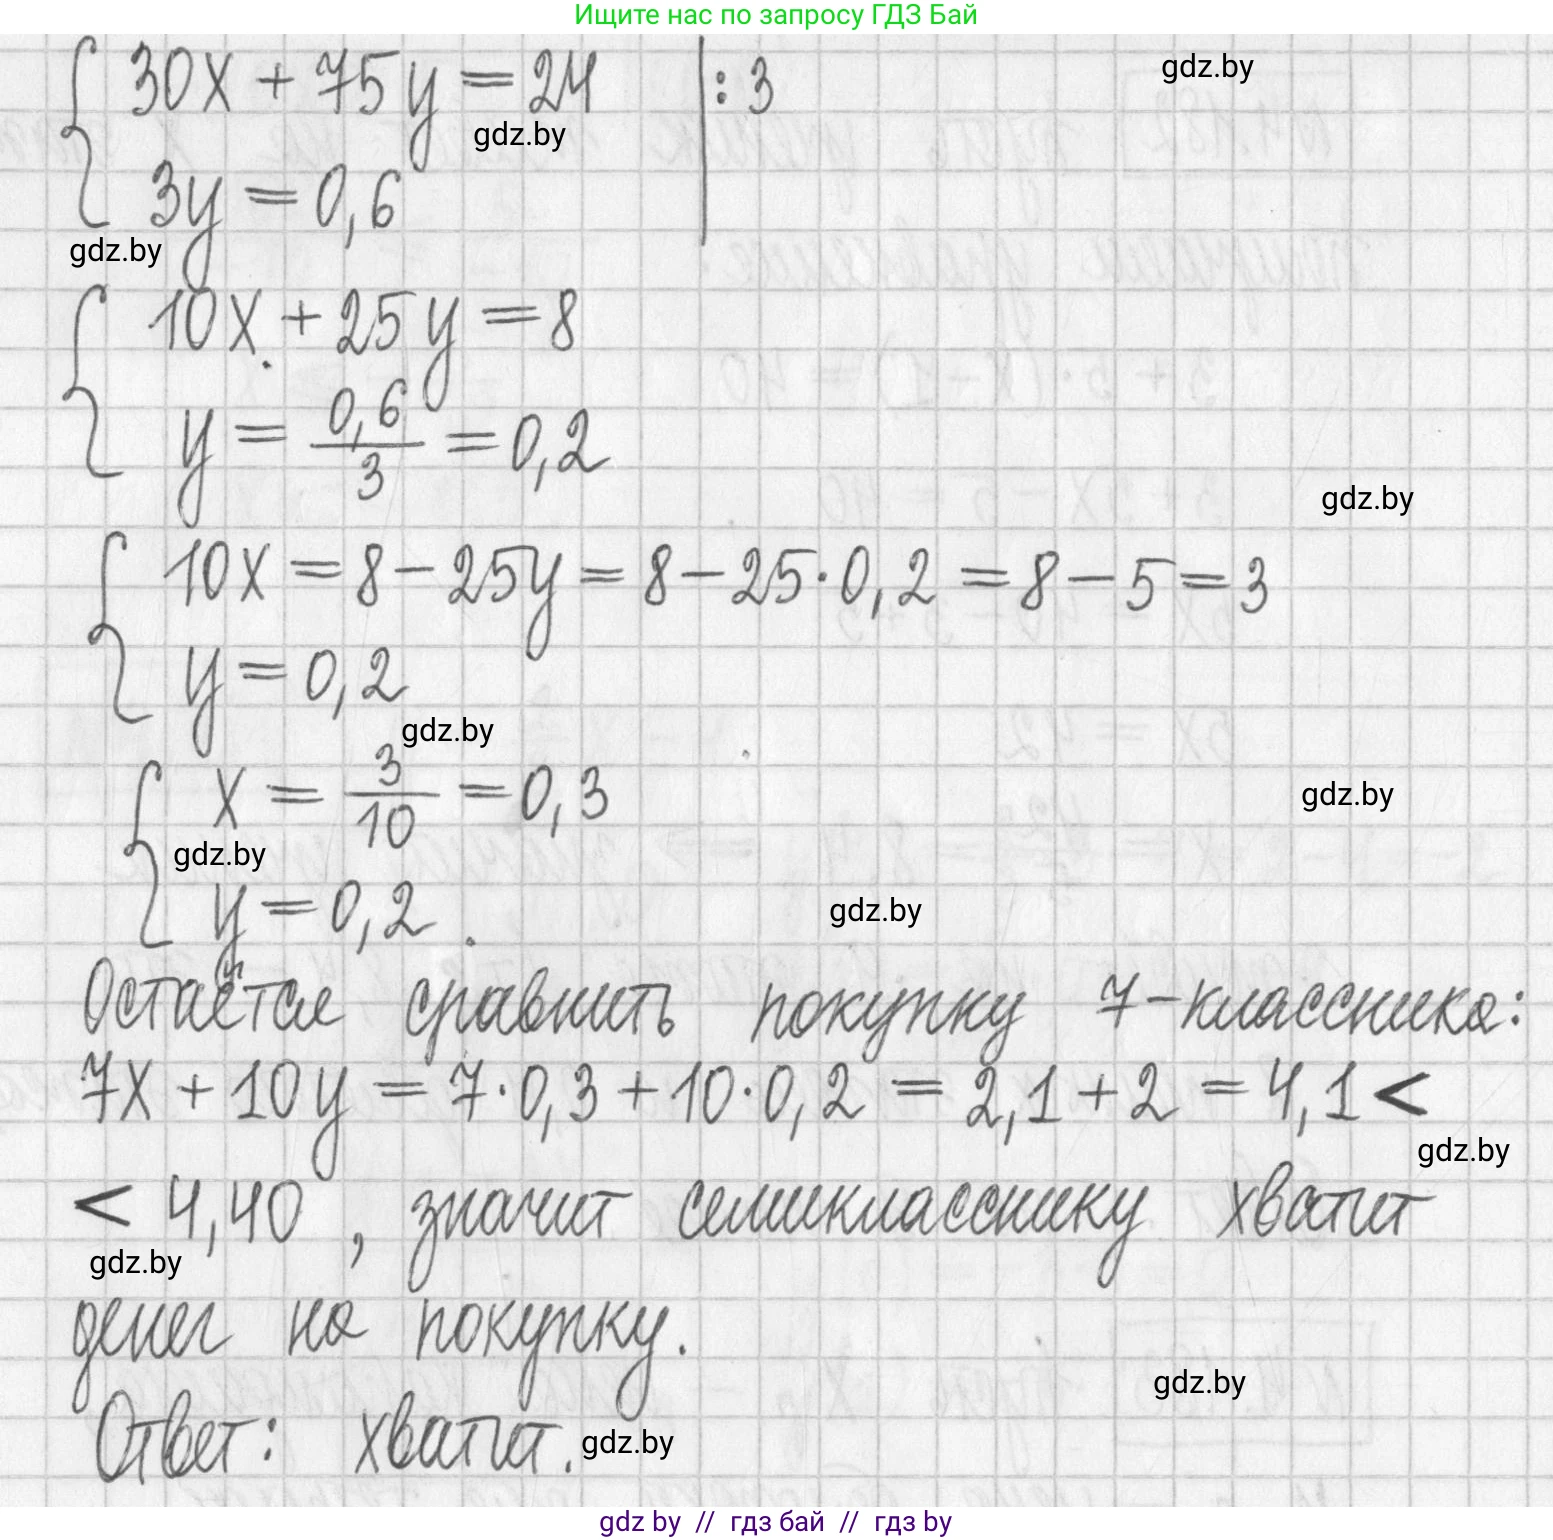 Ищите нас по запросу ГДЗ Бай
30x + 75y = 24 | : 3
gdz.by
gdz.by
3y = 0,6
gdz.by
10x + 25y = 8
y = 0,6/3 = 0,2
gdz.by
10x = 8 - 25y = 8 - 25·0,2 = 8 - 5 = 3
y = 0,2
gdz.by
x = 3/10 = 0,3
gdz.by
gdz.by
y = 0,2.
gdz.by
Остаётся сравнить покупку 7-классника:
7x + 10y = 7·0,3 + 10·0,2 = 2,1 + 2 = 4,1 <
gdz.by
< 4,40, значит семикласснику хватит
gdz.by
денег на покупку.
gdz.by
Ответ: хватит.
gdz.by
gdz by // гдз бай // гдз by